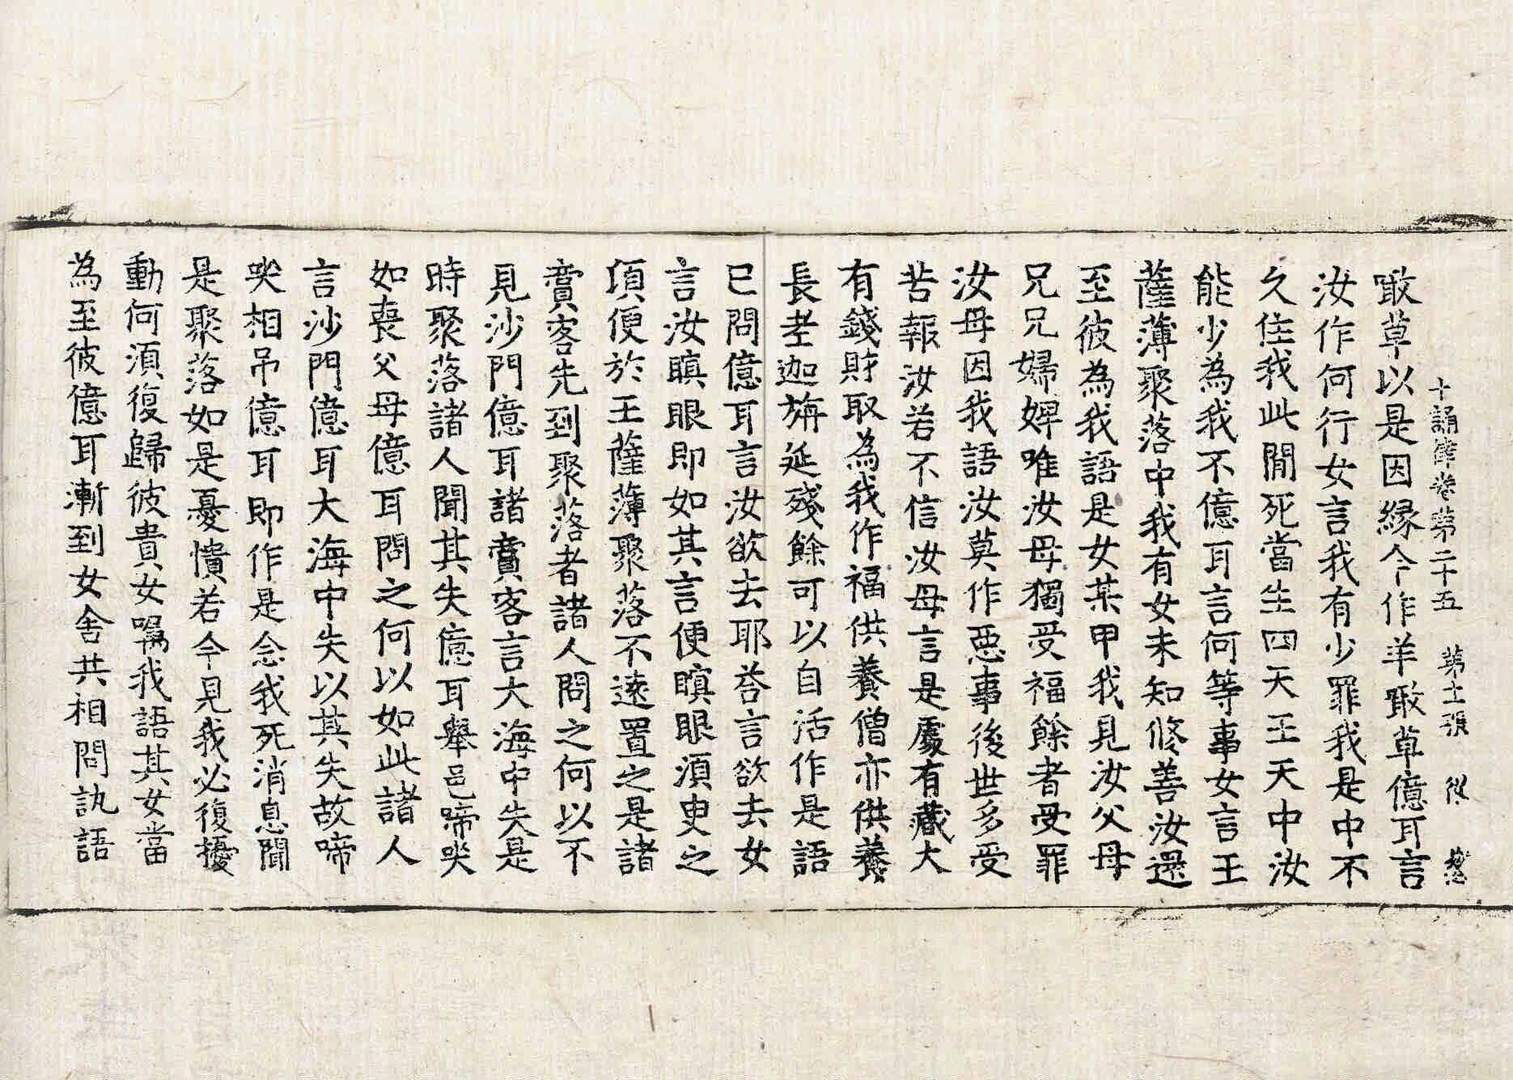 十誦律卷第二十五 第十二張
噉草以是因緣今作羊噉草億耳言
汝作何行女言我有少罪我是中不
久住我此間死當生四天王天中汝
能少為我不億耳言何等事女言王
薩薄聚落中我有女未知修善汝還
至彼為我語是女某甲我見汝父母
兄兄婦婢唯汝母獨受福餘者受罪
汝母因我語汝莫作惡事後世多受
苦報汝若不信汝母言是處有藏大
有錢財取為我作福供養僧亦供養
長老迦旃延殘餘可以自活作是語
已問億耳言汝欲去耶荅言欲去女
言汝瞋眼即如其言便瞋眼須臾之
頃便於王薩薄聚落不遠置之是諸
賣客先到聚落者諸人問之何以不
見沙門億耳諸賣客言大海中失是
時聚落諸人聞其失億耳舉邑啼哭
如喪父母億耳問之何以如此諸人
言沙門億耳大海中失以其失故啼
哭相吊億耳即作是念我死消息聞
是聚落如是憂憒若今見我必復擾
動何須復歸彼貴女囑我語其女當
為至彼億耳漸到女舍共相問訊語